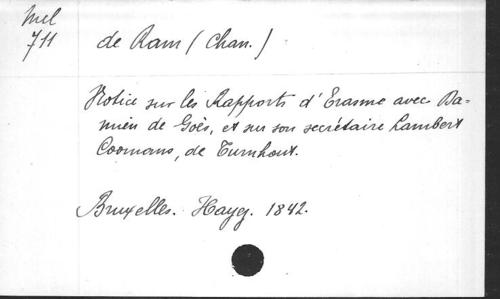 Mel
711
de Ram (Chan.)
Notice sur les Rapports d'Erasme avec Da-
mien de Goès, et sur son secrétaire Lambert
Coomans, de Turnhout.
Bruxelles. Hayez. 1842.